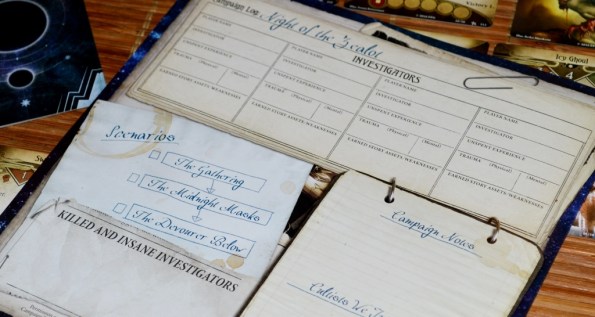 Campaign Log Night of the Zealot
INVESTIGATORS
PLAYER NAME PLAYER NAME PLAYER NAME PLAYER NAME
INVESTIGATOR INVESTIGATOR INVESTIGATOR INVESTIGATOR
UNSPENT EXPERIENCE UNSPENT EXPERIENCE UNSPENT EXPERIENCE UNSPENT EXPERIENCE
TRAUMA (Physical) (Mental) TRAUMA (Physical) (Mental) TRAUMA (Physical) (Mental) TRAUMA (Physical) (Mental)
EARNED STORY ASSETS/WEAKNESSES EARNED STORY ASSETS/WEAKNESSES EARNED STORY ASSETS/WEAKNESSES EARNED STORY ASSETS/WEAKNESSES
Scenarios
The Gathering
The Midnight Masks
The Devourer Below
KILLED AND INSANE INVESTIGATORS
Campaign Notes
Cultists We
Victory 1.
Icy Ghoul